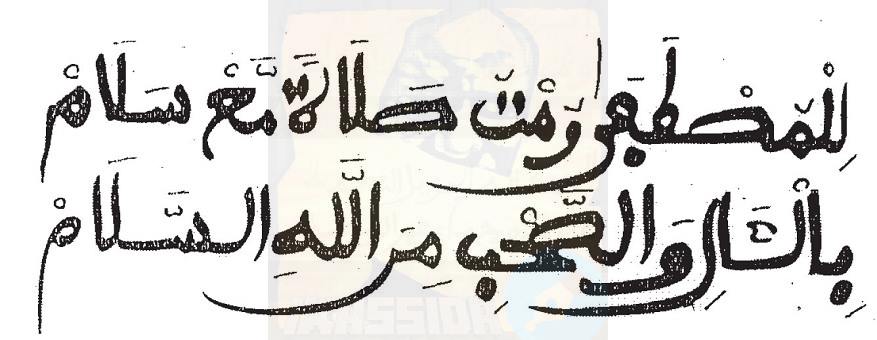 لِلْمُصْطَفَى صَلَاةٌ مَّعْ سَلَامْ
بِالْآلِ وَالصَّحْبِ مِنَ اللَّهِ السَّلَامْ